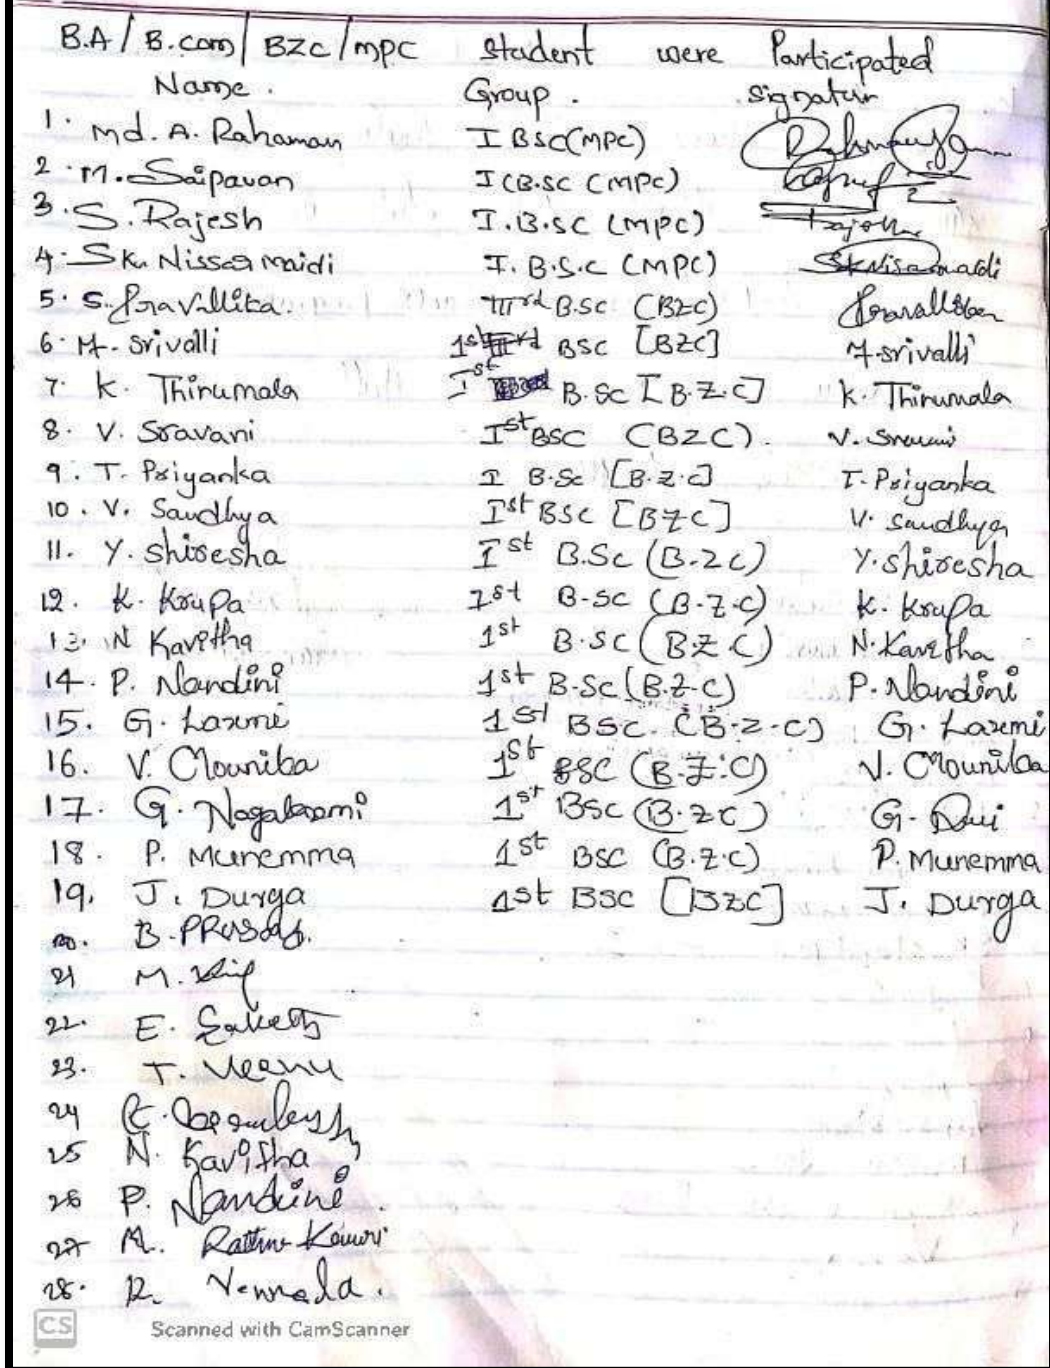 B.A / B.com / BZC / MPC Student were Participated
Name. Group. signatur
1. Md. A. Rahaman I BSC(MPC)
2. M. Saipavan I (B.SC (MPC)
3. S. Rajesh I.B.SC (MPC)
4. SK. Nissar maidi I. B.S.C (MPC) SkNisamaidi
5. S. Pravallika. IIIrd B.SC (BZC) Pravallika
6. M. srivalli 1st BSC [BZC] M. srivalli
7. K. Thirumala Ist B.Sc [B.Z.C] K. Thirumala
8. V. Sravani Ist BSC (BZC). V. Sravani
9. T. Priyanka I B.Sc [B.Z.C] T. Priyanka
10. V. Sandhya Ist BSC [BZC] V. Sandhya
11. Y. Shiresha Ist B.Sc (B.ZC) Y. Shiresha
12. K. Krupa 1st B-SC (B.Z.C) K. Krupa
13. N Kavitha 1st B.SC (B.Z.C) N. Kavitha
14. P. Nandini 1st B.SC(B.Z.C) P. Nandini
15. G. Laxmi 1st BSC. (B.Z.C) G. Laxmi
16. V. Mounika 1st BSC (B.Z.C) V. Mounika
17. G. Nagalaxmi 1st BSC (B.ZC) G.
18. P. Munemma 1st BSC (B.Z.C) P. Munemma
19. J. Durga 1st BSC [BZC] J. Durga
20. B. PRasad.
21 M.
22. E. Saketh
23. T. Veenu
24
25 N. Kavitha
26 P. Nandini.
27 M.
28. R.
CS Scanned with CamScanner